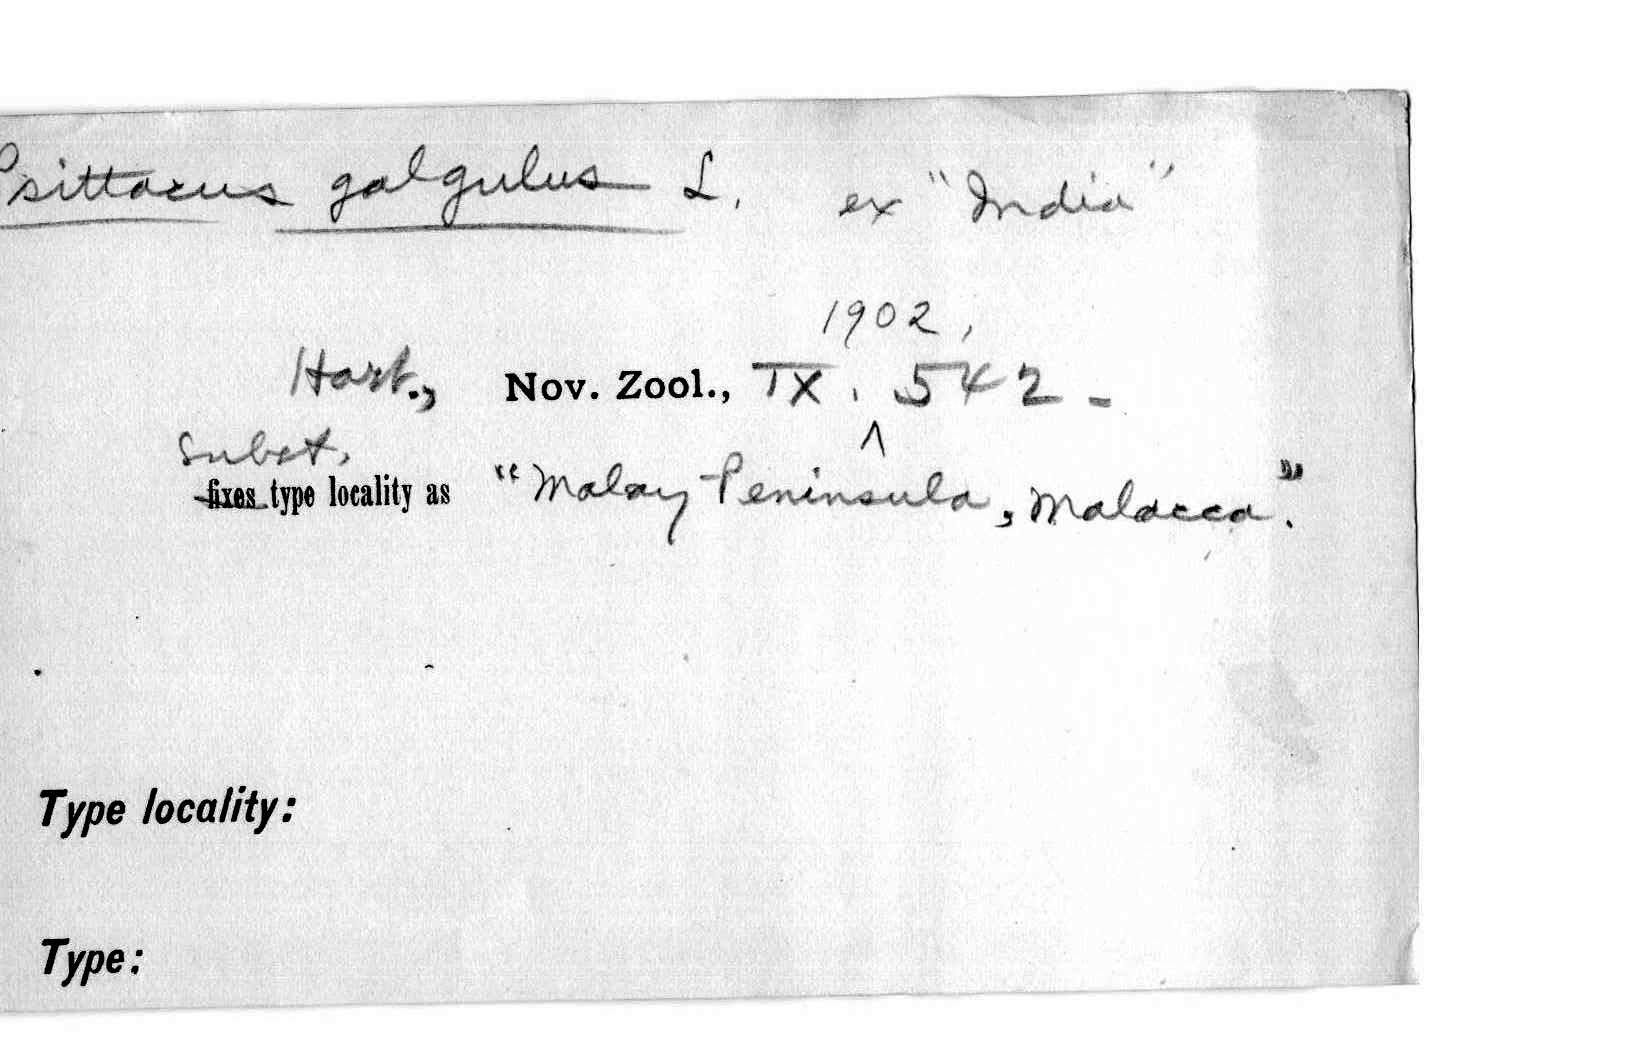 Psittacus galgulus L. ex "India"
1902,
Hart., Nov. Zool., IX, 542-
^
Subst.
fixes type locality as "Malay Peninsula, Malacca."
Type locality:
Type: